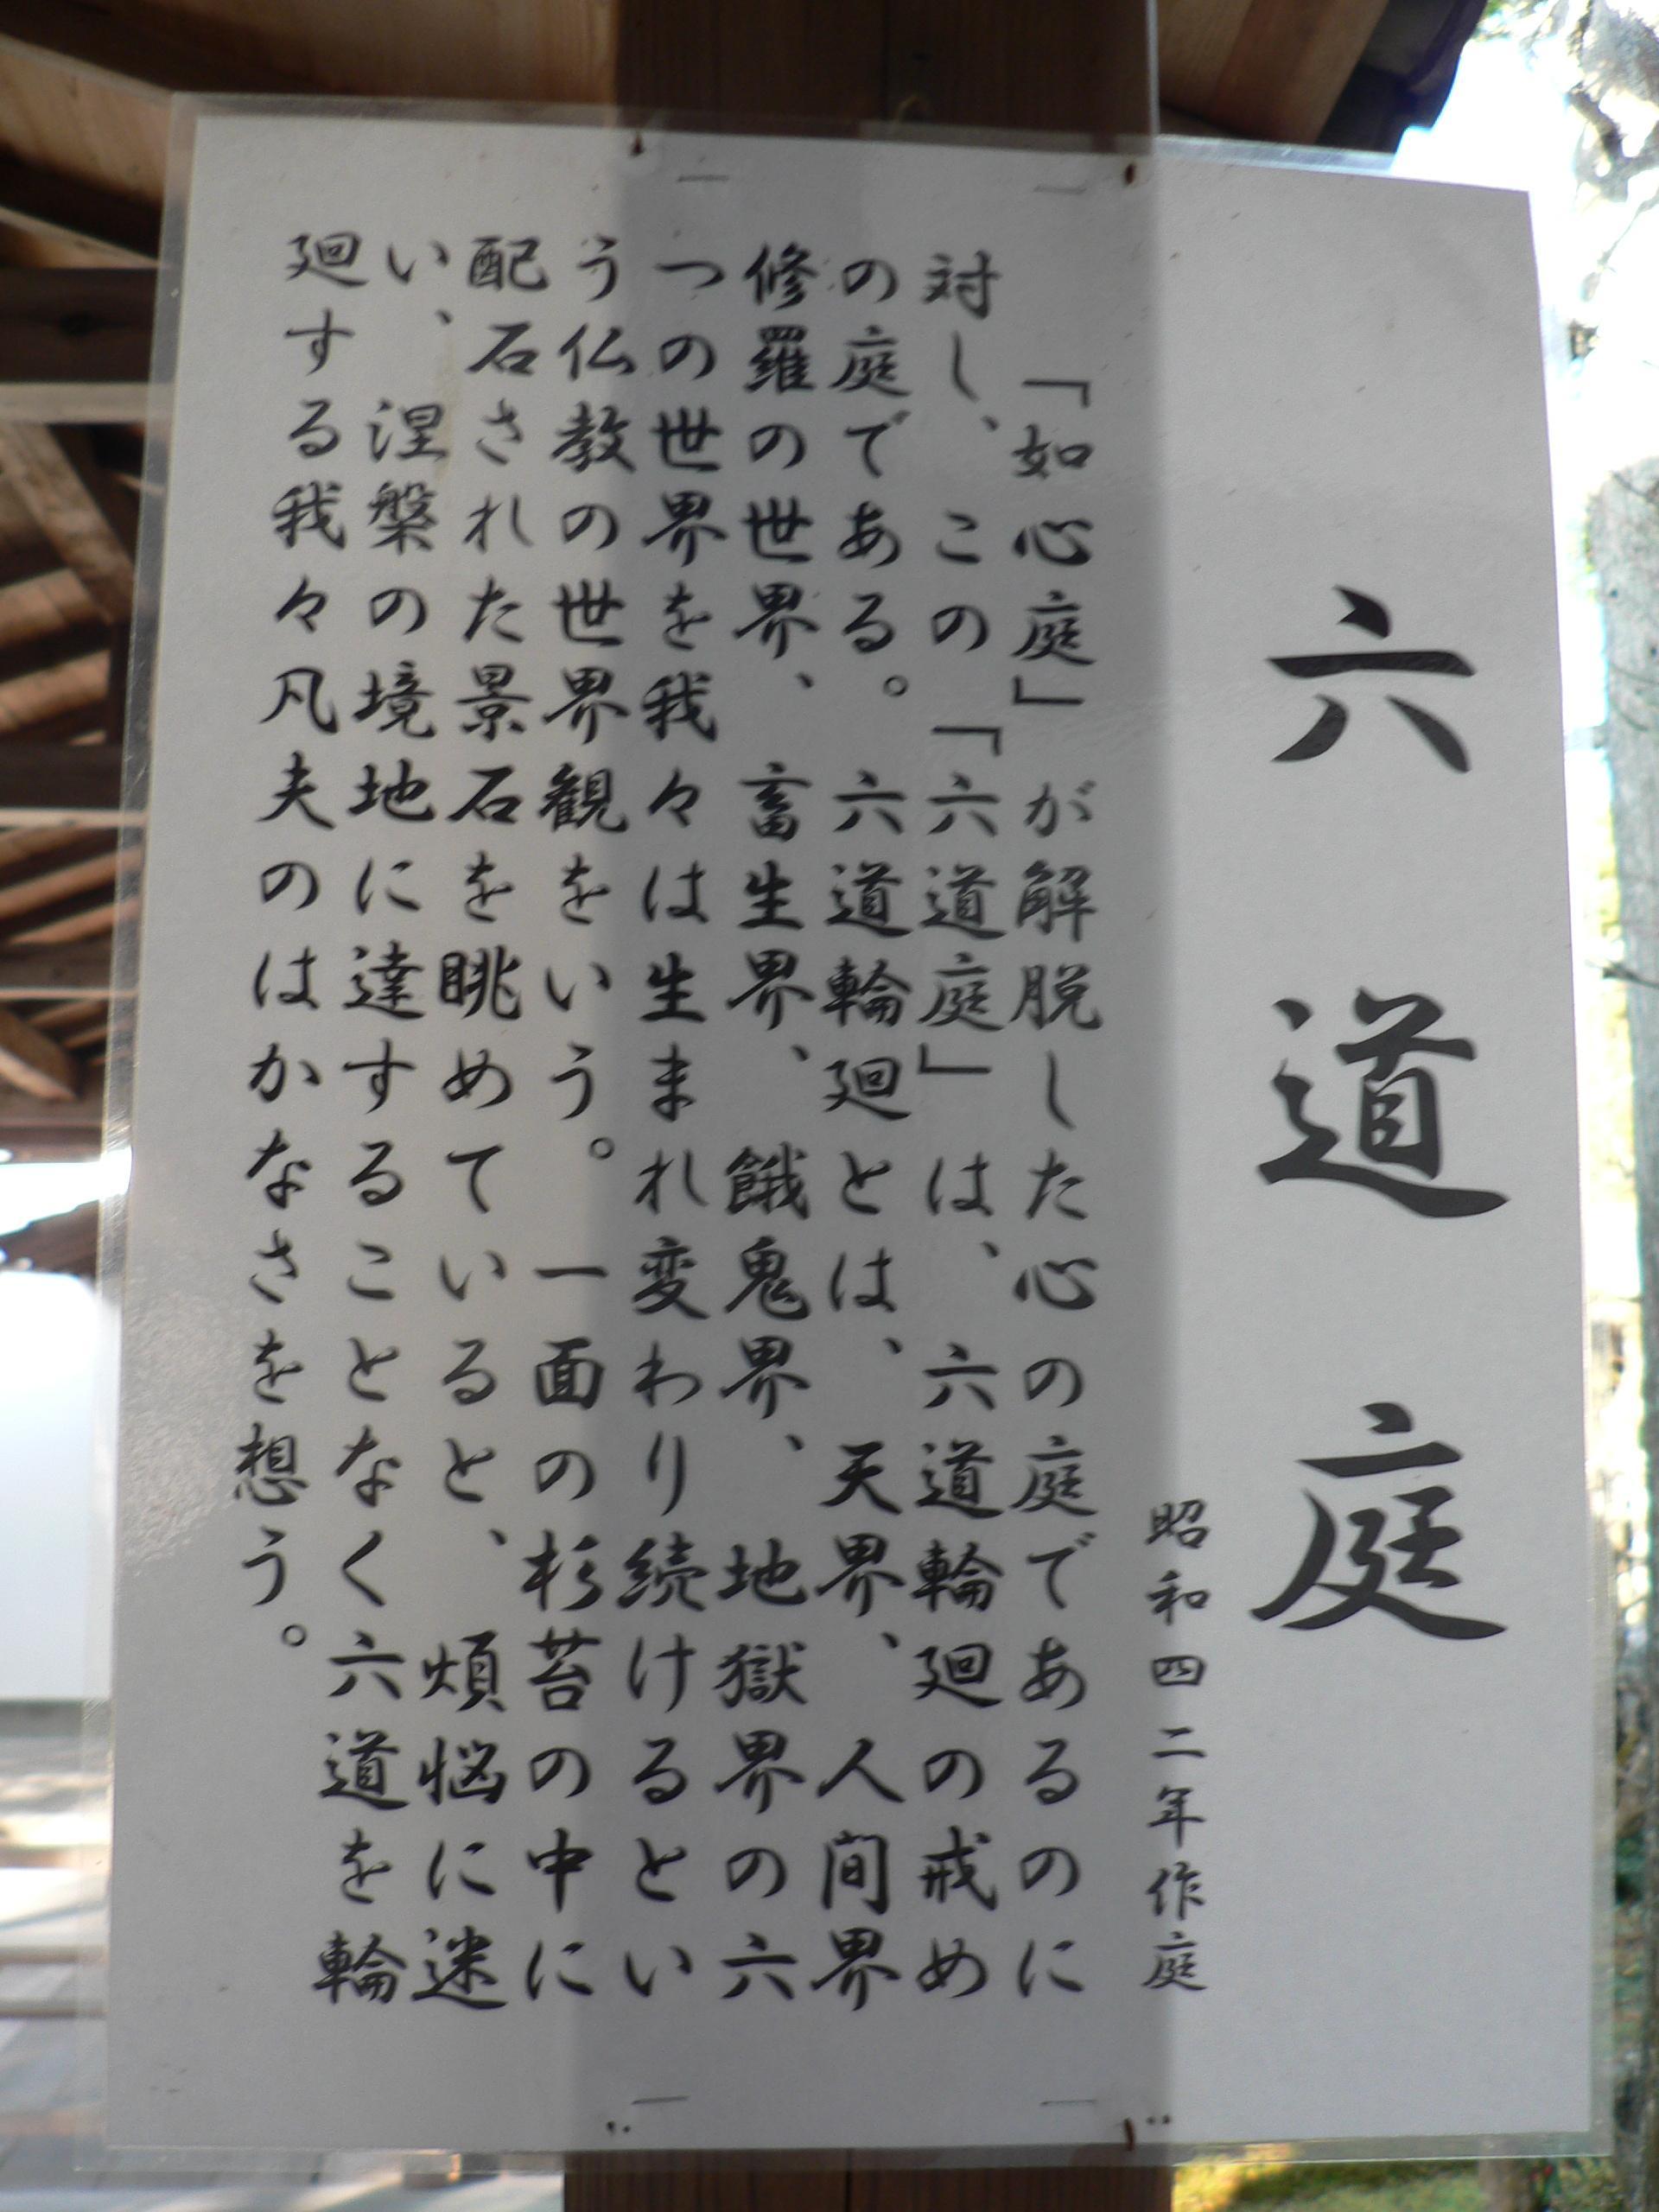 六道庭
昭和四二年作庭
「如心庭」が解脱した心の庭であるのに
対し、この「六道庭」は、六道輪廻の戒め
の庭である。六道輪廻とは、天界、人間界
修羅の世界、畜生界、餓鬼界、地獄界の六
つの世界を我々は生まれ変わり続けるとい
う仏教の世界観をいう。一面の杉苔の中に
配石された景石を眺めていると、煩悩に迷
い、涅槃の境地に達することなく六道を輪
廻する我々凡夫のはかなさを想う。